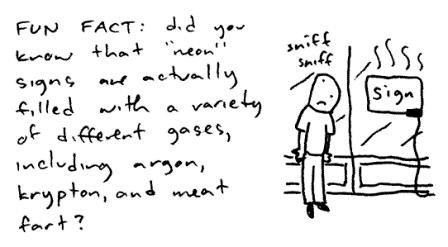 FUN FACT: did you
know that "neon"
signs are actually
filled with a variety
of different gases,
including argon,
krypton, and meat
fart?
sniff
sniff
sign